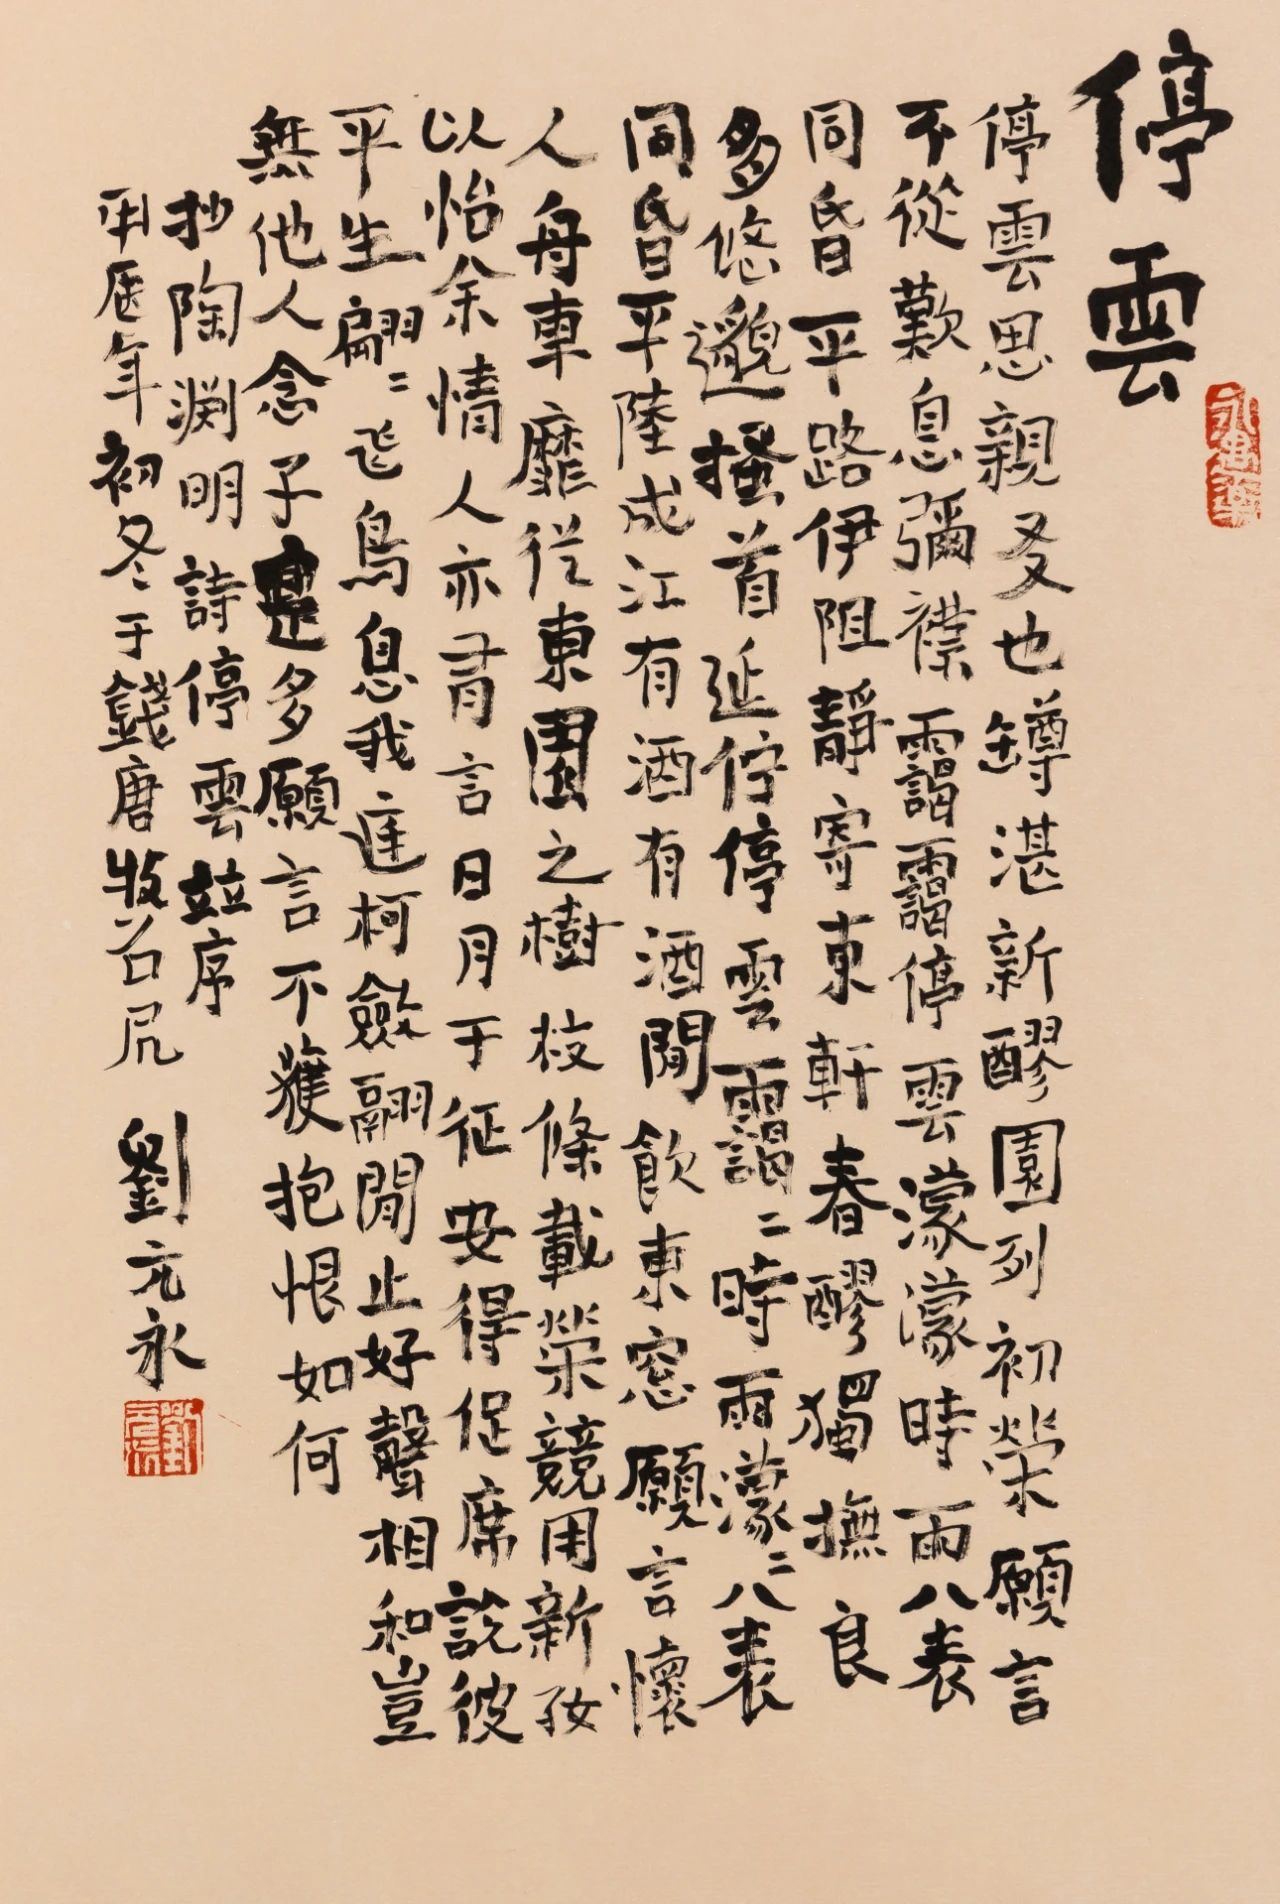 停雲
停雲思親友也罇湛新醪園列初榮願言
不從歎息彌襟靄靄停雲濛濛時雨八表
同昏平路伊阻靜寄東軒春醪獨撫良
朋悠邈搔首延佇停雲靄〻時雨濛〻八表
同昏平陸成江有酒有酒閒飲東窓願言懷
人舟車靡從東園之樹枝條載榮競用新好
以怡余情人亦有言日月于征安得促席說彼
平生翩〻飛鳥息我庭柯斂翮閒止好聲相和豈
無他人念子寔多願言不獲抱恨如何
抄陶渊明詩停雲竝序
甲辰年初冬于錢唐牧石居 劉元永